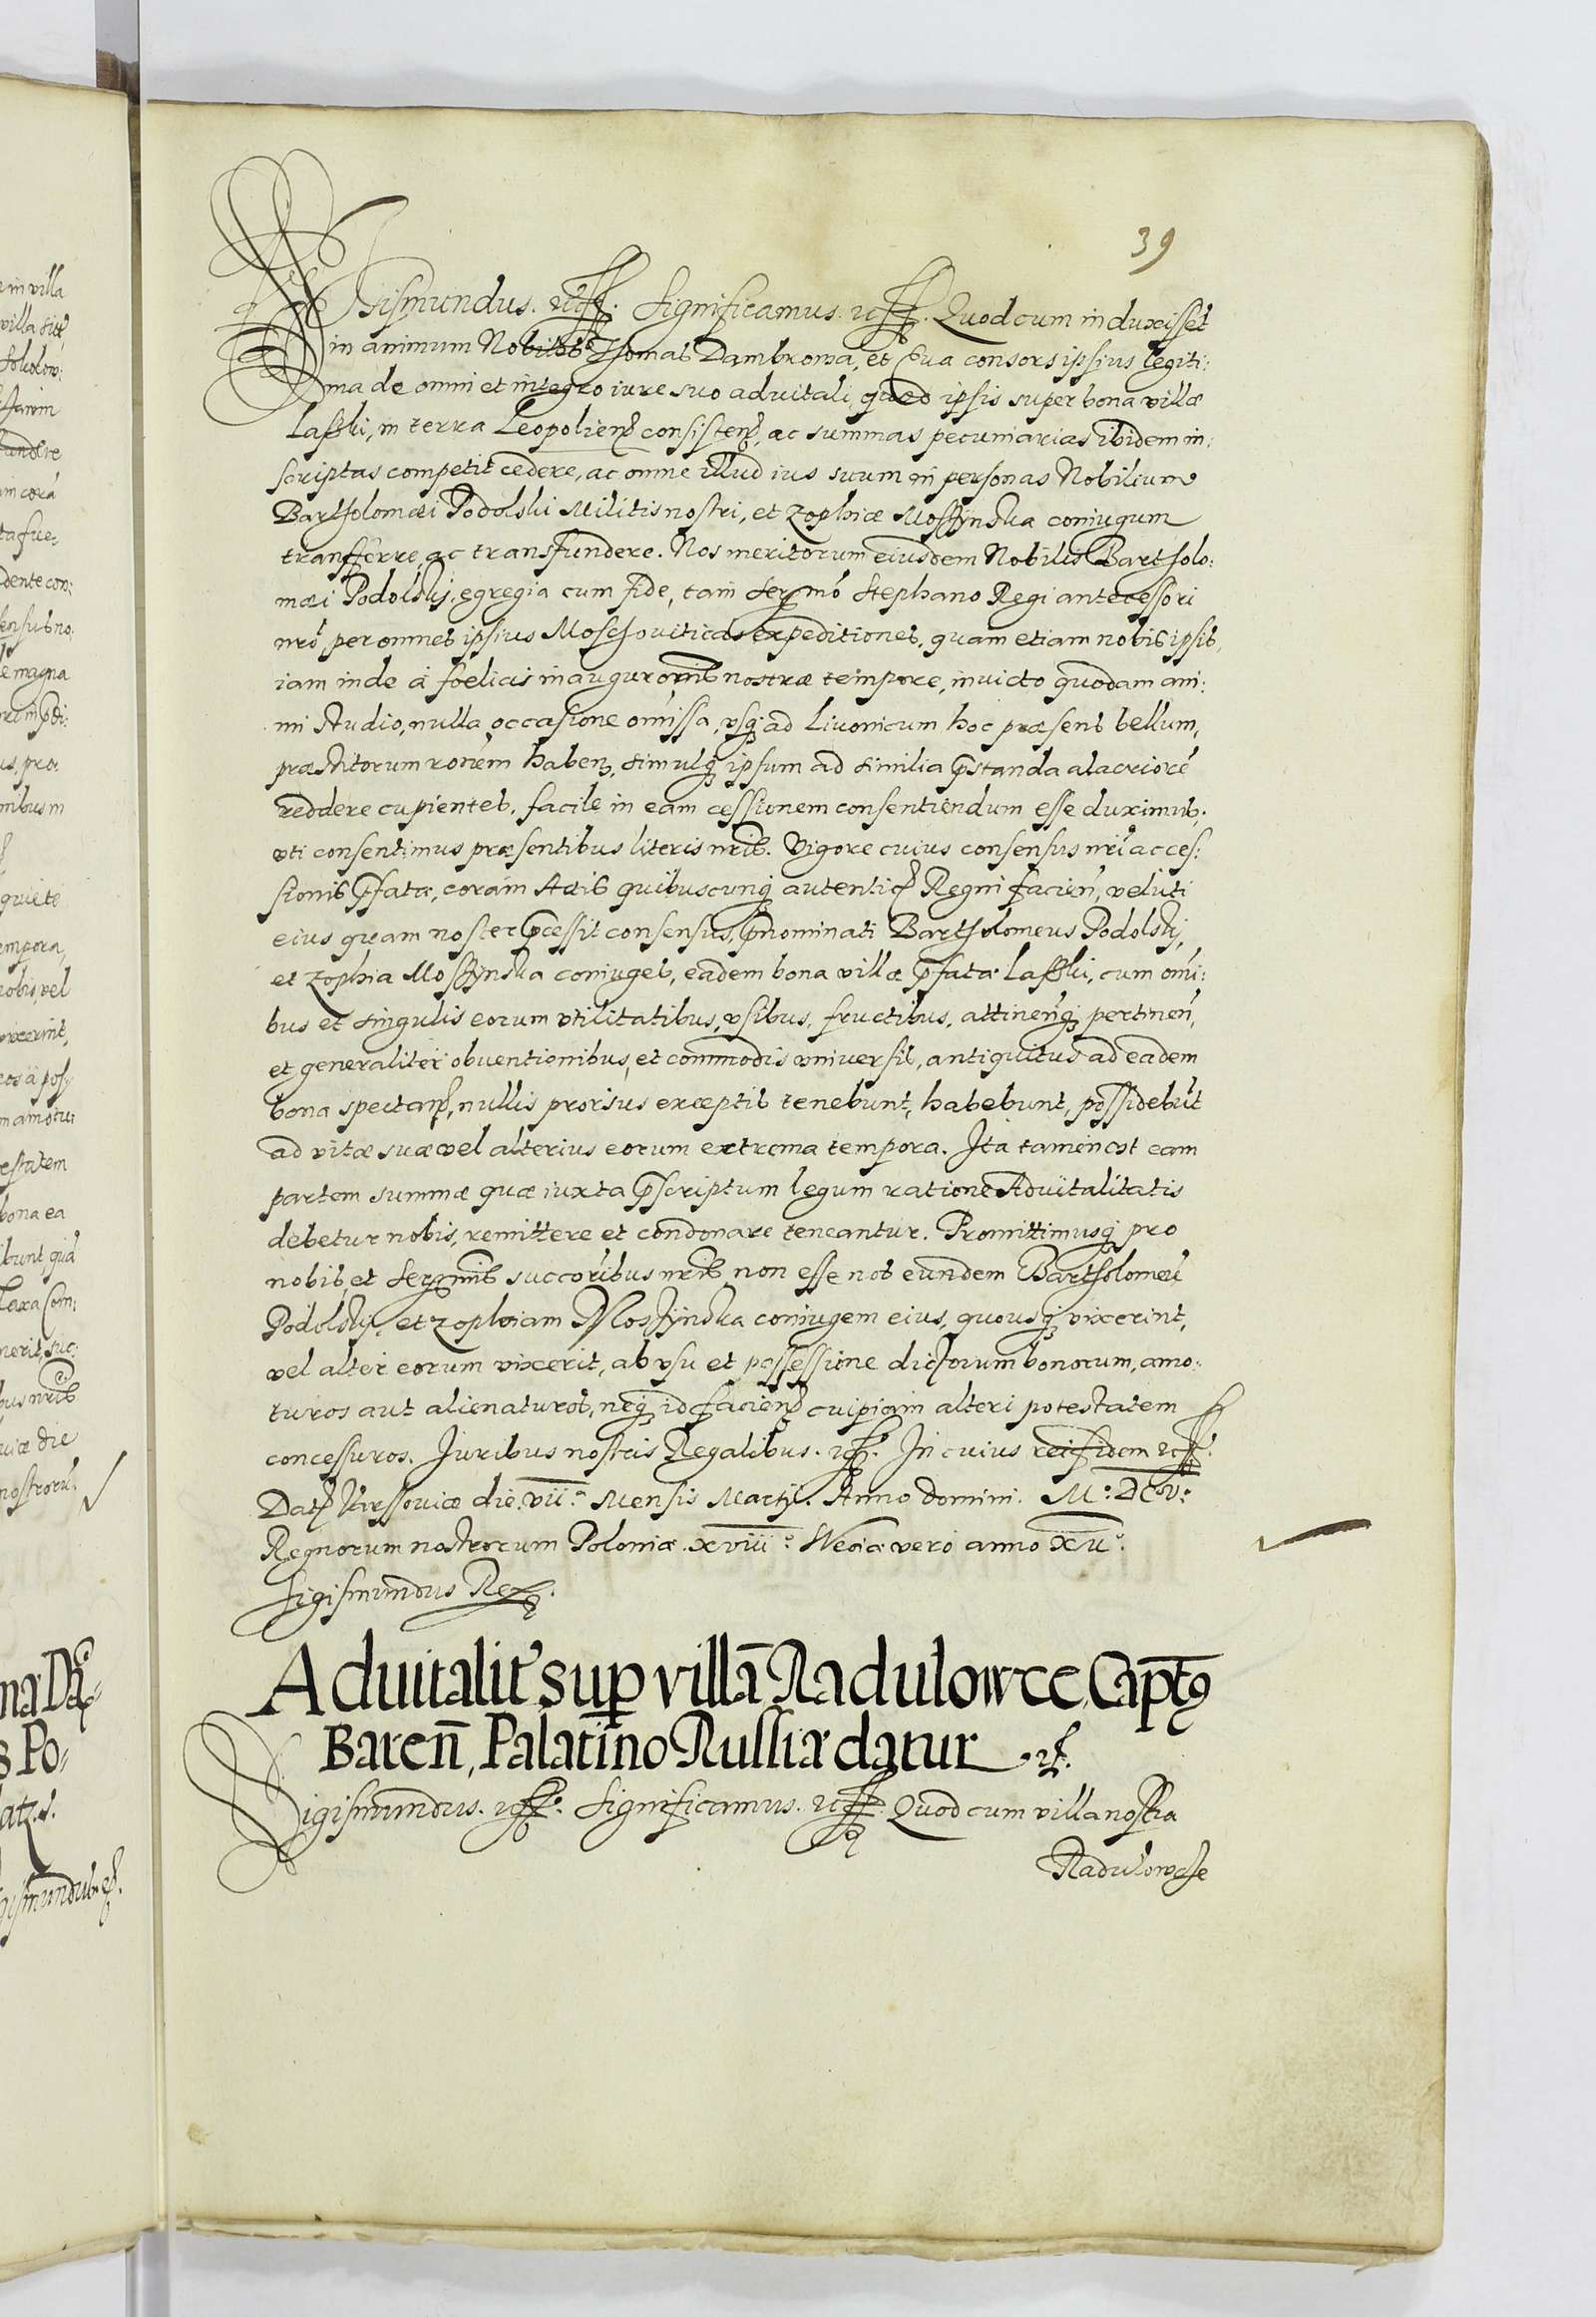 39
Sigismundus. etc. Significamus. etc. Quod cum induxisset
in animum Nobiles Thomas Dambrowa, et Eva consors ipsius legiti:
ma de omni et integro iure suo advitali, quod ipsis super bona villæ
Laszki, in terra Leopolien consisten, ac summas pecuniarias ibidem in:
scriptas competit cedere, ac omne illud ius suum in personas Nobilium
Bartholomæi Podolski Militis nostri, et Zophiæ Moszynska coniugum
transferre, ac transfundere. Nos meritorum eiusdem Nobilis Bartholo:
mæi Podolskj, egregia cum fide, tam Sermo Stephano Regi antecessori
nro per omnes ipsius Moschoviticas expeditiones, quam etiam nobis ipsis,
iam inde a fœlicis inauguronis nostræ tempore, invicto quodam ani:
mi studio, nulla occasione omissa, usq ad Livonicum hoc præsens bellum,
præstitorum ronem haben, simulq ipsum ad similia pstanda alacriorē
reddere cupientes, facile in eam cessionem consentiendum esse duximus,
uti consentimus præsentibus literis nris. Vigore cuius consensus nri ac ces:
sionis pfatæ, coram Actis quibuscunq autentic Regni facien, veluti
eius quam noster pcessit consensus, pnominati Bartholomeus Podolskj,
et Zophia Moszynska coniuges, eadem bona villæ pfatæ Laszki, cum omi:
bus et singulis eorum utilitatibus, usibus, fructibus, attinenq pertinen,
et generaliter obventionibus, et commodis universis, antiquitus ad eadem
bona spectan, nullis prorsus exceptis tenebunt, habebunt, possidebūt
ad vitæ suæ vel alterius eorum extrema tempora. Ita tamen ut eam
partem summæ quæ iuxta pscriptum legum ratione Advitalitatis
debetur nobis, remittere et condonare teneantur. Promittimusq pro
nobis, et Sermis succoribus nris, non esse nos eundem Bartholomeū
Podolskj, et Zophiam Moszynska coniugem eius, quousq vixerint,
vel alter eorum vixerit, ab usu et possessione dictorum bonorum, amo:
turos aut alienaturos, neq id facien cuipiam alteri potestatem
concessuros. Juribus nostris Regalibus. etc. In cuius rei fidem etc.
Dat Varssoviæ die. vii.ª Mensis Martij. Anno Domini. Mº. DCº. vº.
Regnorum nostrorum Poloniæ. xviiiº. Sveciæ vero anno xiiº.
Sigismundus Rex.
Advitalit sup villā Radulowce, Capts
Baren, Palatino Russiæ datur. etc.
Sigismundus. etc. Significamus. etc. Quod cum villa nostra
Radulowcze